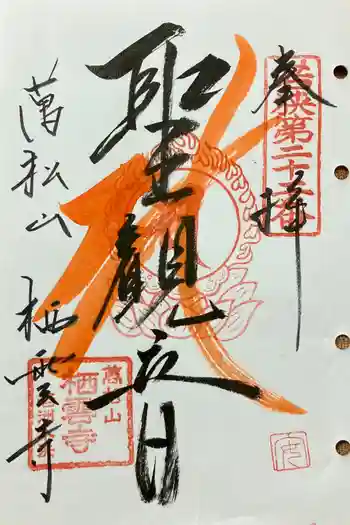 奉拝
若狭第二十三番
聖観世音
秋
萬松山
栖雲寺
萬松山
栖雲寺